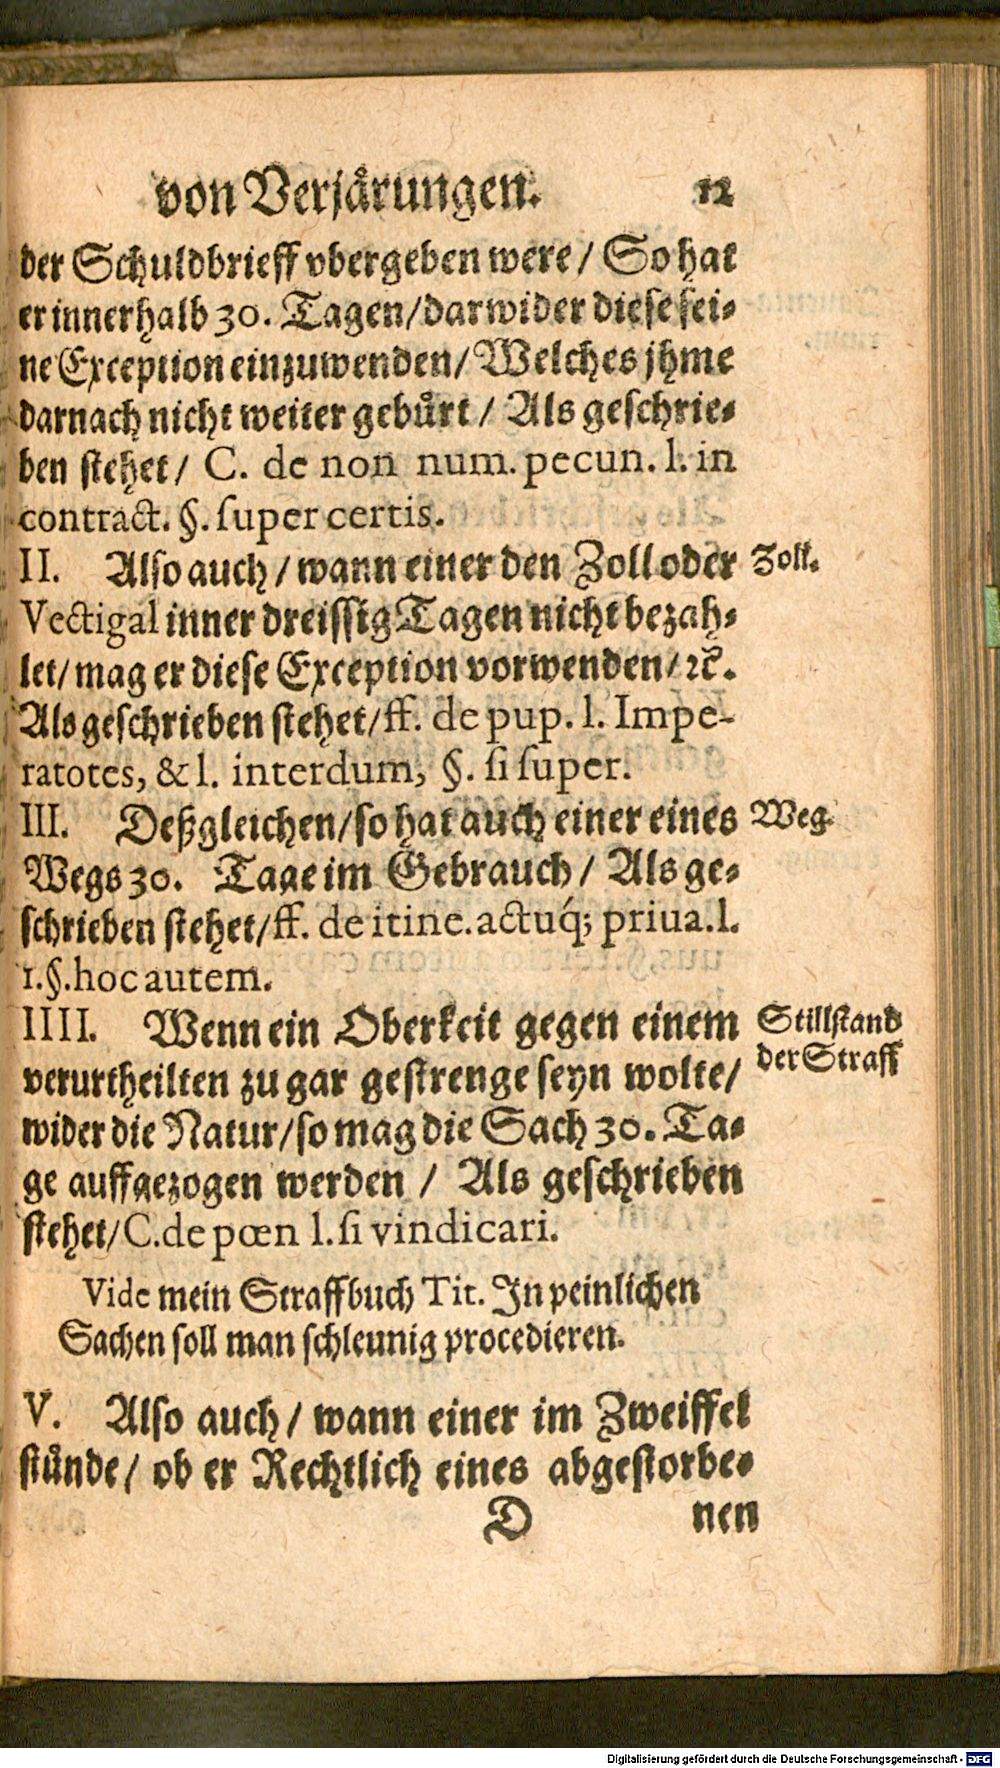 von Verjärungen. 12
der Schuldbrieff vbergeben were / So hat
er innerhalb 30. Tagen / darwider diese sei-
ne Exception einzuwenden / Welches jhme
darnach nicht weiter gebürt / Als geschrie-
ben stehet / C. de non num. pecun. l. in
contract. §. super certis.
II. Also auch / wann einer den Zoll oder
Zoll.
Vectigal inner dreissig Tagen nicht bezah-
let / mag er diese Exception vorwenden / ꝛc.
Als geschrieben stehet / ff. de pup. l. Impe-
ratotes, & l. interdum, §. si super.
III. Deßgleichen / so hat auch einer eines
Weg.
Wegs 30. Tage im Gebrauch / Als ge-
schrieben stehet / ff. de itine. actuq́; priua. l.
1. §. hoc autem.
IIII. Wenn ein Oberkeit gegen einem
Stillstand
der Straff
verurtheilten zu gar gestrenge seyn wolte /
wider die Natur / so mag die Sach 30. Ta-
ge auffgezogen werden / Als geschrieben
stehet / C. de pœn l. si vindicari.
Vide mein Straffbuch Tit. In peinlichen
Sachen soll man schleunig procedieren.
V. Also auch / wann einer im Zweiffel
stünde / ob er Rechtlich eines abgestorbe-
D nen
Digitalisierung gefördert durch die Deutsche Forschungsgemeinschaft - DFG